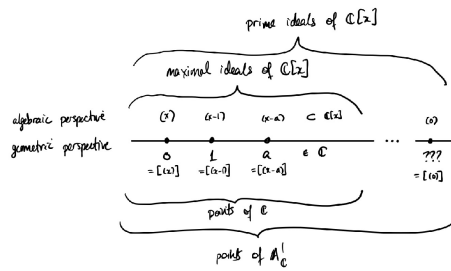 prime ideals of ℂ[x]
maximal ideals of ℂ[x]
algebraic perspective (x) (x-1) (x-a) ⊂ ℂ[x] (0)
geometric perspective 0 1 a ∈ ℂ ... ???
=[(x)] =[(x-1)] =[(x-a)] =[(0)]
points of ℂ
points of 𝔸¹_ℂ